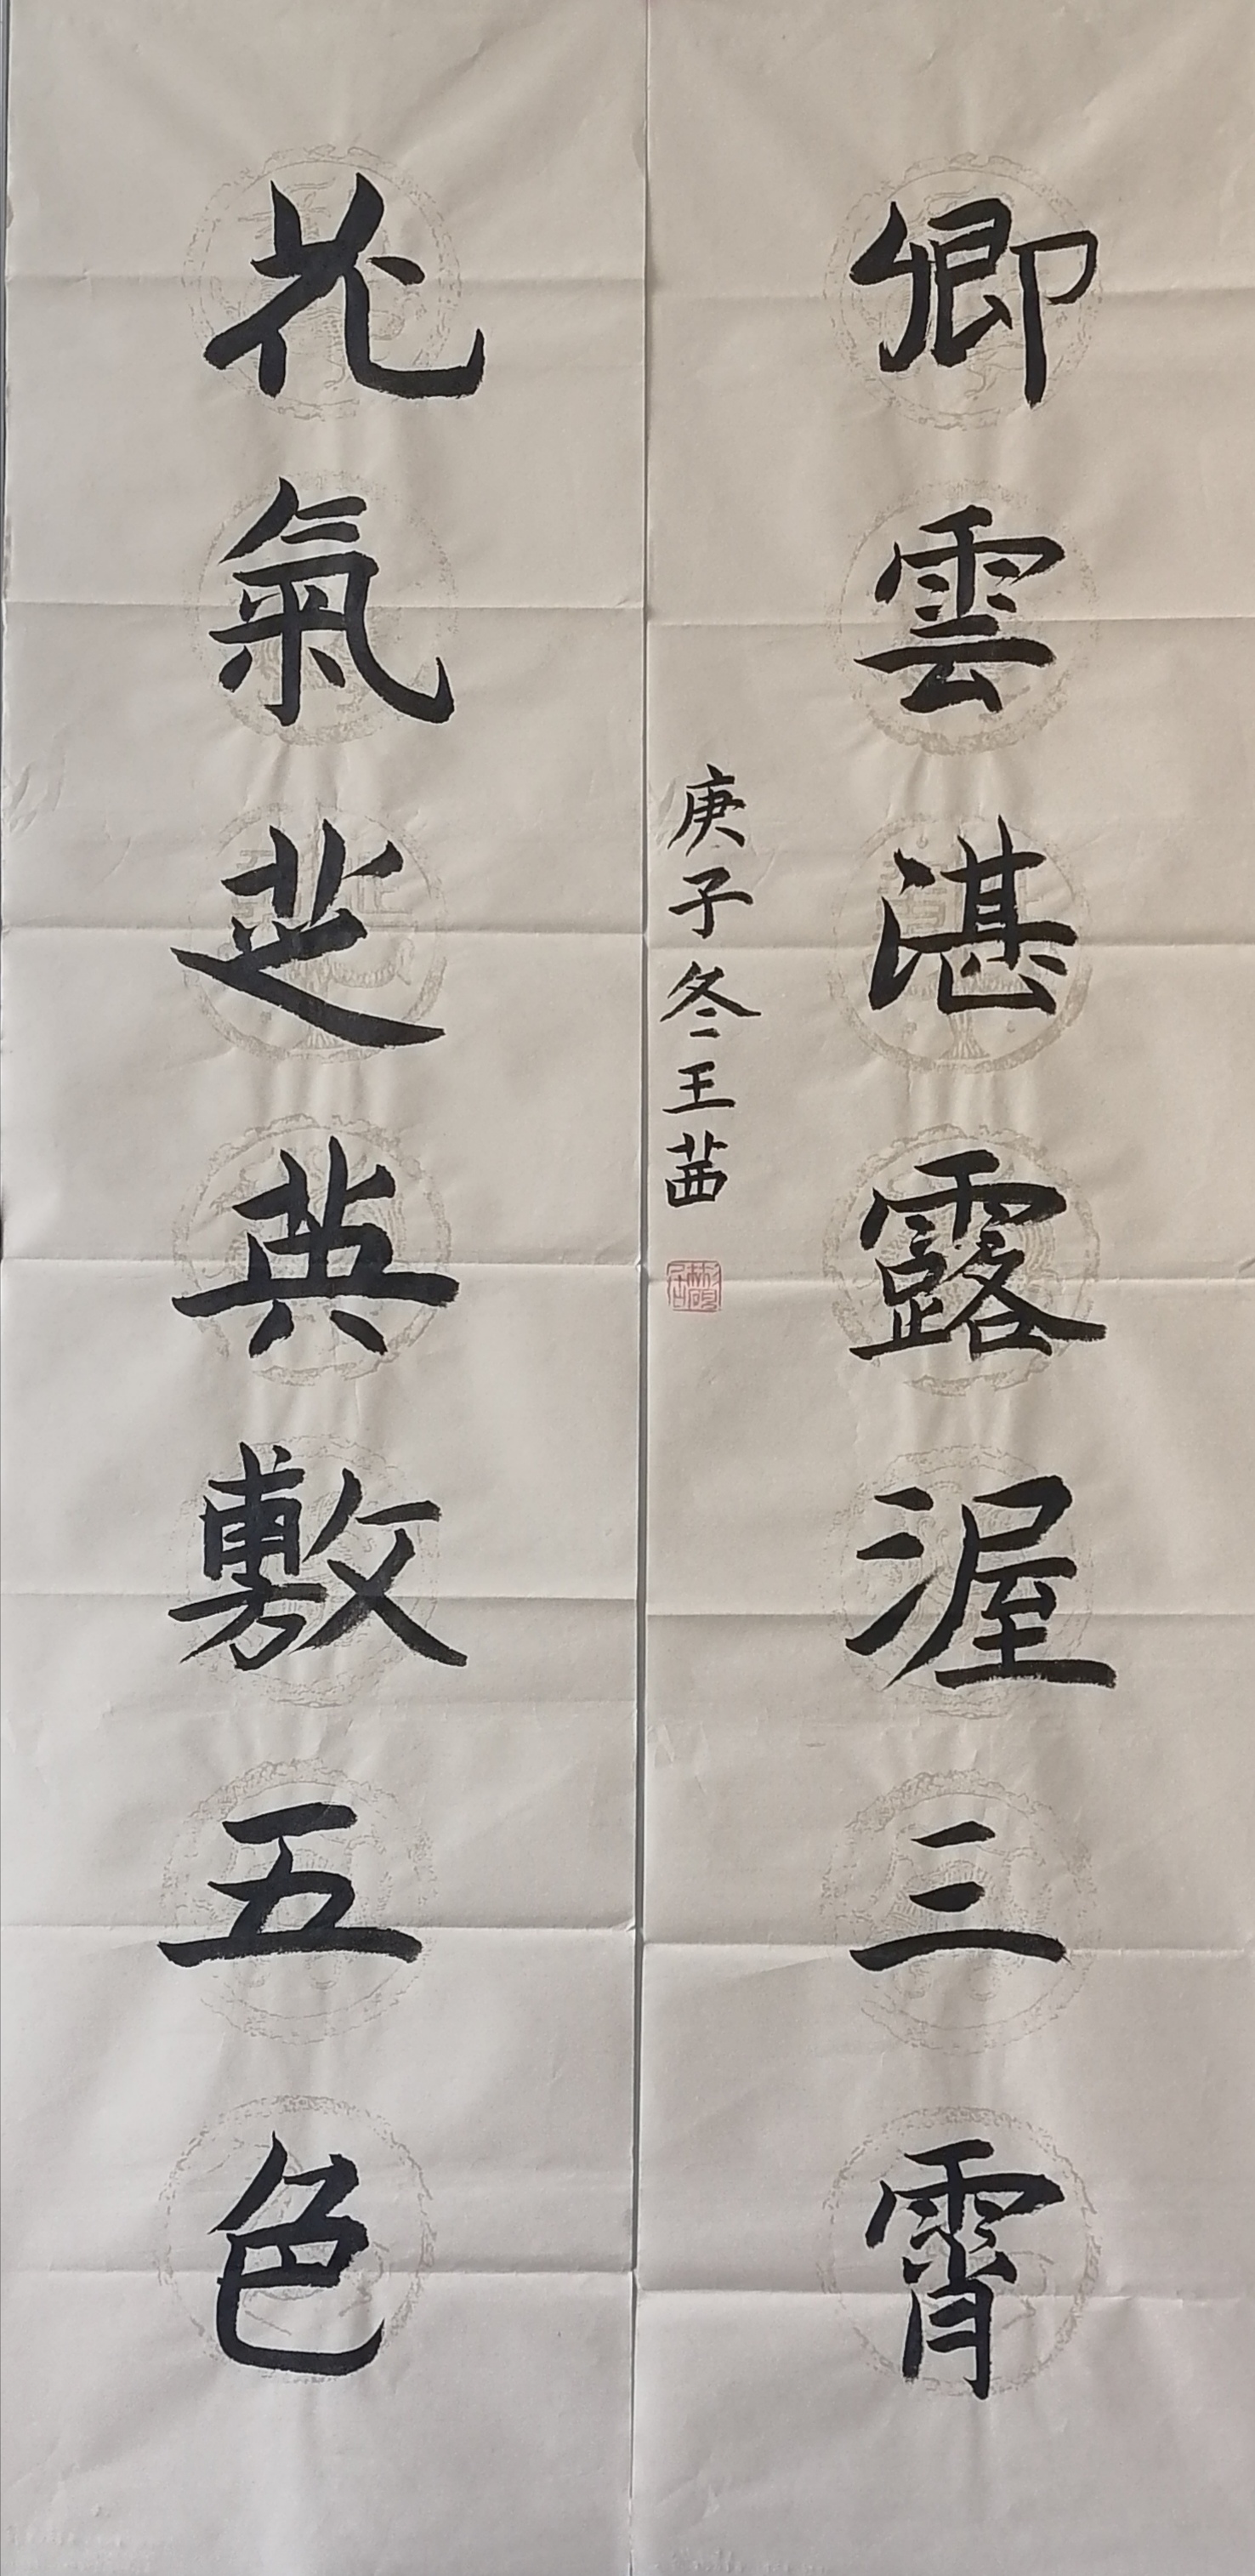 卿雲湛露渥三霄
庚子冬王茜
花氣芝英敷五色